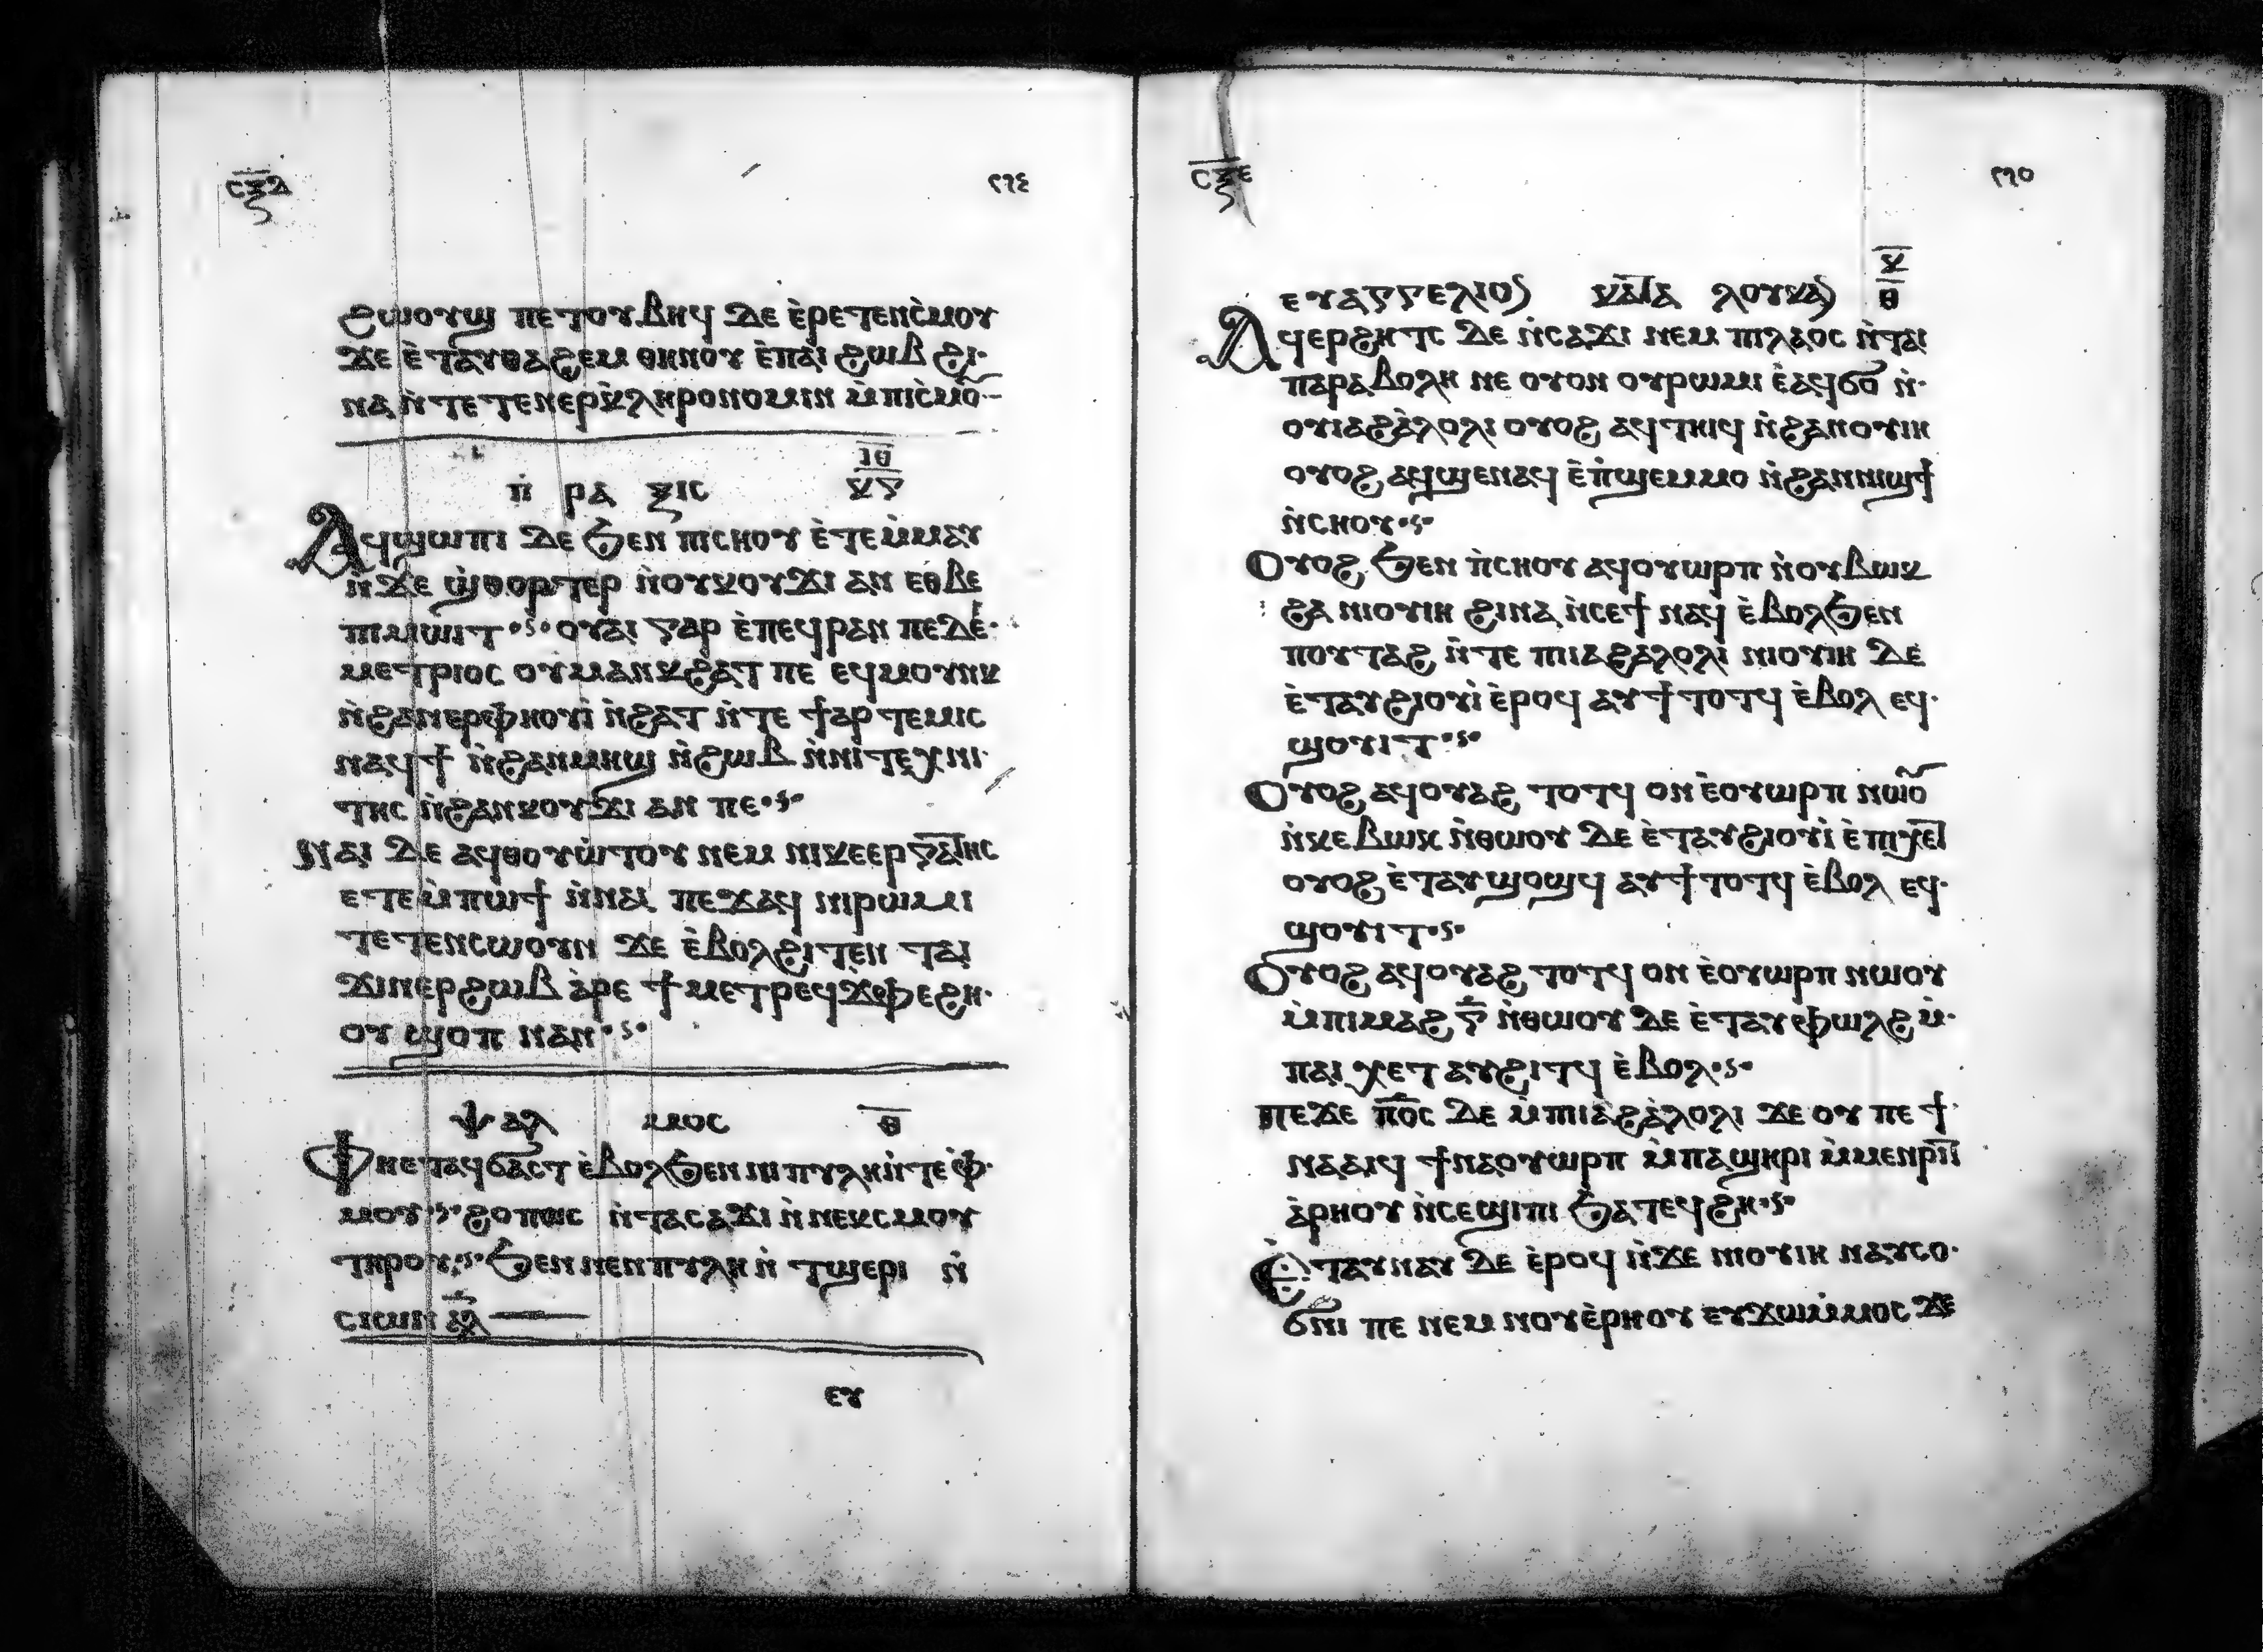 ⲥⲝⲇ
ϩⲱⲟⲩϣ ⲡⲉⲧⲟⲩⲃⲏϥ ⲇⲉ ⲉ̀ⲣⲉⲧⲉⲛⲥ̀ⲙⲟⲩ
ϫⲉ ⲉ̀ⲧⲁⲩⲑⲁϩⲉⲙ ⲑⲏⲛⲟⲩ ⲉ̀ⲡⲁⲓ ϩⲱⲃ ϩⲓ
ⲛⲁ ⲛ̀ⲧⲉⲧⲉⲛⲉⲣⲕ̀ⲗⲏⲣⲟⲛⲟⲙⲓⲛ ⲙ̀ⲡⲓⲥ̀ⲙⲟ̅
ⲡ̀ⲣⲁⲝⲓⲥ ⲓ̅ⲑ̅ ⲕⲅ
Ⲁϥϣⲱⲡⲓ ⲇⲉ ϧⲉⲛ ⲡⲓⲥⲏⲟⲩ ⲉ̀ⲧⲉⲙ̀ⲙⲁⲩ
ⲛ̀ϫⲉ ϣ̀ⲑⲟⲣⲧⲉⲣ ⲛ̀ⲟⲩⲕⲟⲩϫⲓ ⲁⲛ ⲉⲑⲃⲉ
ⲡⲓⲙⲱⲓⲧ ⲟⲩⲁⲓ ⲅⲁⲣ ⲉ̀ⲡⲉϥⲣⲁⲛ ⲡⲉ ⲇⲉ
ⲙⲉⲧⲣⲓⲟⲥ ⲟⲩⲙⲁⲛⲕϩⲁⲧ ⲡⲉ ⲉϥⲙⲟⲩⲛⲕ
ⲛ̀ϩⲁⲛⲉⲣⲫⲏⲟⲩⲓ̀ ⲛ̀ϩⲁⲧ ⲛ̀ⲧⲉ ϯⲁⲣⲧⲉⲙⲓⲥ
ⲛⲁϥϯ ⲛ̀ϩⲁⲛⲙⲏϣ ⲛ̀ϩⲱⲃ ⲛ̀ⲛⲓⲧⲉⲭⲛⲓ
ⲧⲏⲥ ⲛ̀ϩⲁⲛⲕⲟⲩϫⲓ ⲁⲛ ⲡⲉ
Ⲛⲁⲓ ⲇⲉ ⲁϥⲑⲟⲩⲱ̀ⲧⲟⲩ ⲛⲉⲙ ⲛⲓⲕⲉⲉⲣⲅⲁⲧⲏⲥ
ⲉⲧⲉⲙ̀ⲡⲱϯ ⲛ̀ⲛⲁⲓ ⲡⲉϫⲁϥ ⲛⲓⲣⲱⲙⲓ
ⲧⲉⲧⲉⲛⲥⲱⲟⲩⲛ ϫⲉ ⲉ̀ⲃⲟⲗϩⲓⲧⲉⲛ ⲧⲁⲓ
ϫⲓⲛⲉⲣϩⲱⲃ ⲁ̀ⲣⲉ ϯⲙⲉⲧⲣⲉϥϫⲫⲉϩⲏ
ⲟⲩ ϣⲟⲡ ⲛⲁⲛ
ⲯⲁⲗⲙⲟⲥ ⲑ̅
Ⲫⲏⲉⲧⲁϥϭⲁⲥⲧ ⲉ̀ⲃⲟⲗϧⲉⲛ ⲛⲓⲡⲩⲗⲏ ⲛ̀ⲧⲉ ⲫ̀
ⲙⲟⲩ ϩⲟⲡⲱⲥ ⲛ̀ⲧⲁⲥⲁϫⲓ ⲛ̀ⲛⲉⲕⲥⲙⲟⲩ
ⲧⲏⲣⲟⲩ ϧⲉⲛ ⲛⲉⲛⲡⲩⲗⲏ ⲛ̀ ⲧϣⲉⲣⲓ ⲛ̀
ⲥⲓⲱⲛ ⲁⲗ
ⲉⲩ
ⲥⲝⲉ
ⲉⲩⲁⲅⲅⲉⲗⲓⲟⲛ ⲕⲁⲧⲁ ⲗⲟⲩⲕⲁⲛ ⲕ̅ ⲑ̅
Ⲁϥⲉⲣϩⲏⲧⲥ ⲇⲉ ⲛ̀ⲥⲁϫⲓ ⲛⲉⲙ ⲡⲓⲗⲁⲟⲥ ⲛ̀ⲧⲁⲓ
ⲡⲁⲣⲁⲃⲟⲗⲏ ⲛⲉ ⲟⲩⲟⲛ ⲟⲩⲣⲱⲙⲓ ⲉ̀ⲁϥϭⲟ ⲛ̀
ⲟⲩⲓⲁϩⲁ̀ⲗⲟⲗⲓ ⲟⲩⲟϩ ⲁϥⲧⲏⲓϥ ⲛ̀ϩⲁⲛⲟⲩⲓⲏ
ⲟⲩⲟϩ ⲁϥϣⲉⲛⲁϥ ⲉ̀ⲡ̀ϣⲉⲙⲙⲟ ⲛ̀ϩⲁⲛⲛⲓϣϯ
ⲛ̀ⲥⲏⲟⲩ
Ⲟⲩⲟϩ ϧⲉⲛ ⲡ̀ⲥⲏⲟⲩ ⲁϥⲟⲩⲱⲣⲡ ⲛ̀ⲟⲩⲃⲱⲕ
ϩⲁ ⲛⲓⲟⲩⲓⲏ ϩⲓⲛⲁ ⲛ̀ⲥⲉϯ ⲛⲁϥ ⲉ̀ⲃⲟⲗϧⲉⲛ
ⲡⲟⲩⲧⲁϩ ⲛ̀ⲧⲉ ⲡⲓⲁϩⲁⲗⲟⲗⲓ ⲛⲓⲟⲩⲓⲏ ⲇⲉ
ⲉ̀ⲧⲁⲩϩⲓⲟⲩⲓ̀ ⲉ̀ⲣⲟϥ ⲁⲩϯⲧⲟⲧϥ ⲉ̀ⲃⲟⲗ ⲉϥ
ϣⲟⲩⲓⲧ
Ⲟⲩⲟϩ ⲁϥⲟⲩⲁϩ ⲧⲟⲧϥ ⲟⲛ ⲉ̀ⲟⲩⲱⲣⲡ ⲛⲱⲟ̅
ⲛ̀ⲕⲉⲃⲱⲕ ⲛ̀ⲑⲱⲟⲩ ⲇⲉ ⲉ̀ⲧⲁⲩϩⲓⲟⲩⲓ̀ ⲉ̀ⲡⲓⲭⲉⲧ
ⲟⲩⲟϩ ⲉ̀ⲧⲁⲩϣⲟϣϥ ⲁⲩϯⲧⲟⲧϥ ⲉ̀ⲃⲟⲗ ⲉϥ
ϣⲟⲩⲓⲧ
Ⲟⲩⲟϩ ⲁϥⲟⲩⲁϩ ⲧⲟⲧϥ ⲟⲛ ⲉ̀ⲟⲩⲱⲣⲡ ⲛⲱⲟⲩ
ⲙ̀ⲡⲓⲙⲁϩ ⲅ̅ ⲛ̀ⲑⲱⲟⲩ ⲇⲉ ⲉ̀ⲧⲁⲩⲫⲱⲗϩ ⲙ̀
ⲡⲁⲓ ⲭⲉⲧ ⲁⲩϩⲓⲧϥ ⲉ̀ⲃⲟⲗ
ⲡⲉϫⲉ ⲡ̅ⲟ̅ⲥ̅ ⲇⲉ ⲙ̀ⲡⲓⲁϩⲁ̀ⲗⲟⲗⲓ ϫⲉ ⲟⲩ ⲡⲉϯ
ⲛⲁⲁⲓϥ ϯⲛⲁⲟⲩⲱⲣⲡ ⲙ̀ⲡⲁϣⲏⲣⲓ ⲙ̀ⲙⲉⲛⲣⲓⲧ
ⲁ̀ⲣⲏⲟⲩ ⲛ̀ⲥⲉϣⲓⲡⲓ ϧⲁⲧⲉϥϩⲏ
Ⲉ̀ⲧⲁⲩⲛⲁⲩ ⲇⲉ ⲉ̀ⲣⲟϥ ⲛ̀ϫⲉ ⲛⲓⲟⲩⲓⲏ ⲛⲁⲩⲥⲟ
ϭⲛⲓ ⲡⲉ ⲛⲉⲙ ⲛⲟⲩⲉ̀ⲣⲏⲟⲩ ⲉⲩϫⲱⲙ̀ⲙⲟⲥ ϫⲉ